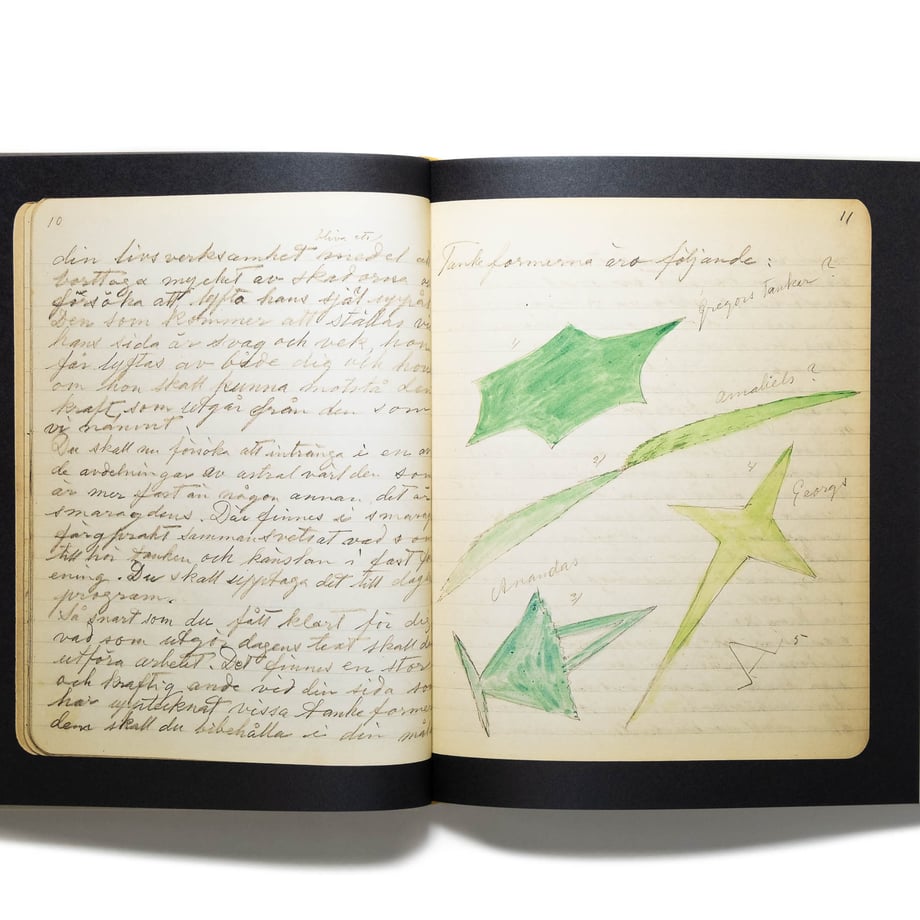 10
bliva ett
din livsverksamhet medel
borttaga mycket av skadorna
försöka att lyfta hans själ uppåt
Den som kommer att ställas vi
hans sida är svag och vek, hon
får lyftas av både dig och ho
om hon skall kunna motstå den
kraft, som utgår från den som
vi nämnt.
Du skall nu försöka att intränga i en
de avdelningar av astralvärlden som
är mer fast än någon annan det är
smaragdens. Där finnes i smarag
färgprakt sammansvetsat vad som
till hör tanken och känslan i fast
ening. Du skall upptaga det till dage
program.
Så snart som du fått klart för dig
vad som utgör dagens text skall d
utföra arbetet. Det finnes en stor
och kraftig ande vid din sida so
har upptecknat vissa tankeforme
dem skall du bibehålla i din
11
Tankeformerna äro följande:
Gregors Tankar?
1/
Amaliels?
2/
4/
Georgs
Anandas
3/
5